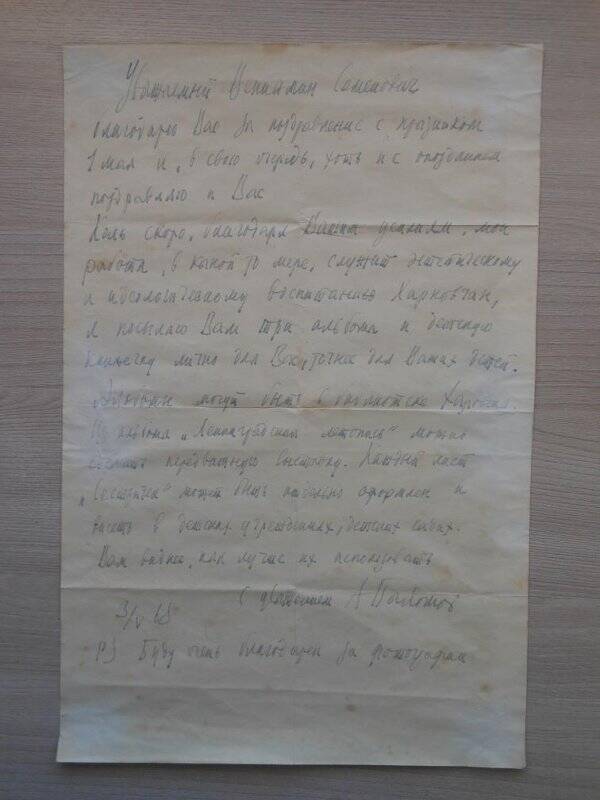 Уважаемый Вениамин Семенович
благодарю Вас за поздравление с праздником
1 мая и, в свою очередь, хоть и с опозданием
поздравляю и Вас
Коль скоро, благодаря Вашим усилиям, моя
работа, в какой то мере, служит эстетическому
и идеологическому воспитанию Харьковчан,
я посылаю Вам три альбома и детскую
книжечку лично для Вас, точнее для Ваших детей.
Альбомы могут быть в библиотеке
Из альбома „Ленинградская летопись" можно
сделать передвижную выставку. Каждый лист
может быть отдельно оформлен и
висеть в детских учреждениях, детских садах.
Вам виднее, как лучше их использовать
С уважением А Пахомов
3/V 68
PS Буду очень благодарен за фотографии